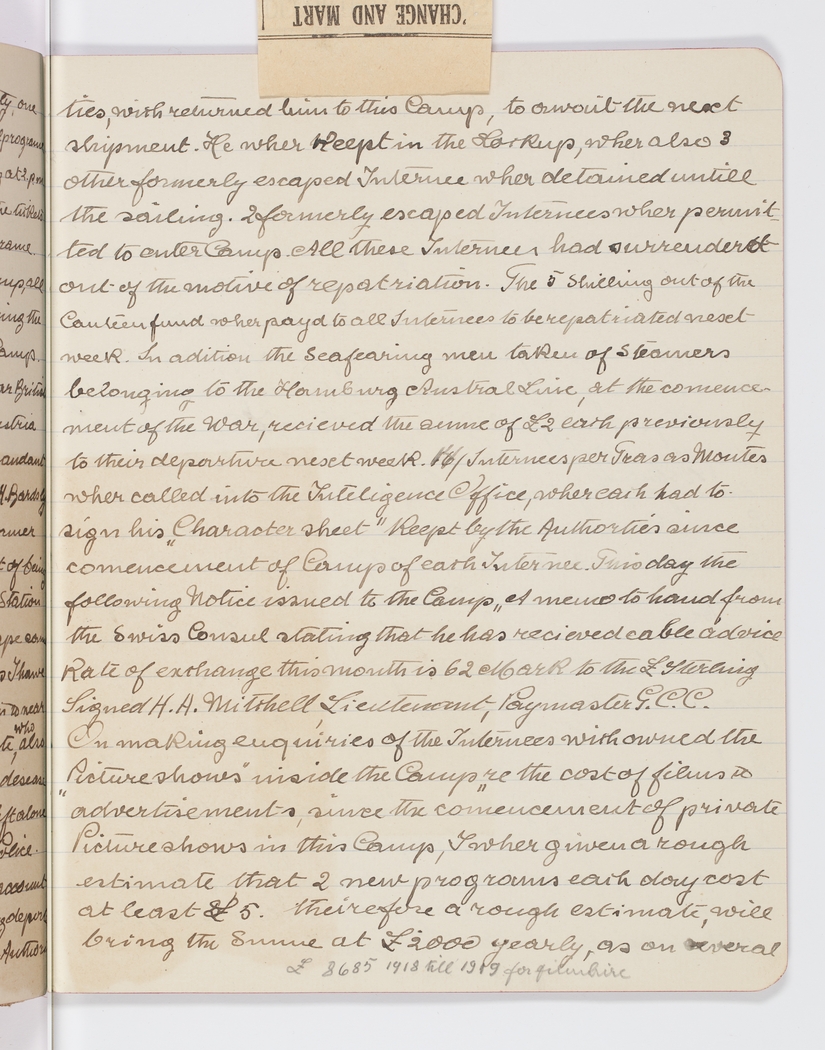 'CHANGE AND MART
ties, wich returned him to this Camp, to awoit the next
shipment. He wher Keept in the Lockup, wher also 3
other formerly escaped Internee wher detained untill
the sailing. 2 formerly escaped Internees wher permit-
ted to enter Camp. All these Internees had surrenderd
out of the motive of repatriation. The 5 Shilling out of the
Canteen fund wher payd to all Internees to be repatriated nesct
week. In adition the Seafearing men taken of Steamers
belonging to the Hamburg Austral Line, at the comence-
ment of the War, recieved the sume of £2 each previously
to their departure nesct week. 16/ Internees per Tras as Montes
wher called into the Inteligence Office, wher each had to
sign his "Character sheet" Keept by the Authorties since
comencement of Camp of each Internee. This day the
following Notice issued to the Camp "A memo to hand from
the Swiss Consul stating that he has recieved cable advice
Rate of exchange this month is 62 Mark to the £ Sterling
Signed H. A. Mitchell Lieutenant, Paymaster G.C.C.
On making enquiries of the Internees wich owned the
"Picture shows" inside the Camp "re the cost of films to
advertisements, since the comencement of private
Picture shows in this Camp, I wher given a rough
estimate that 2 new programs each day cost
at least £ 5. theirefore a rough estimate, will
bring the Sume at £2000 yearly, as on several
£ 8685 1918 till 1919 for filmhire
ty, one
programe
at 2 p.m
rame
all
ing the
Camp.
British
stria
andant
H. Bardsly
rmer
t of being
Station
who
also
desease
alone
account
deport
Author